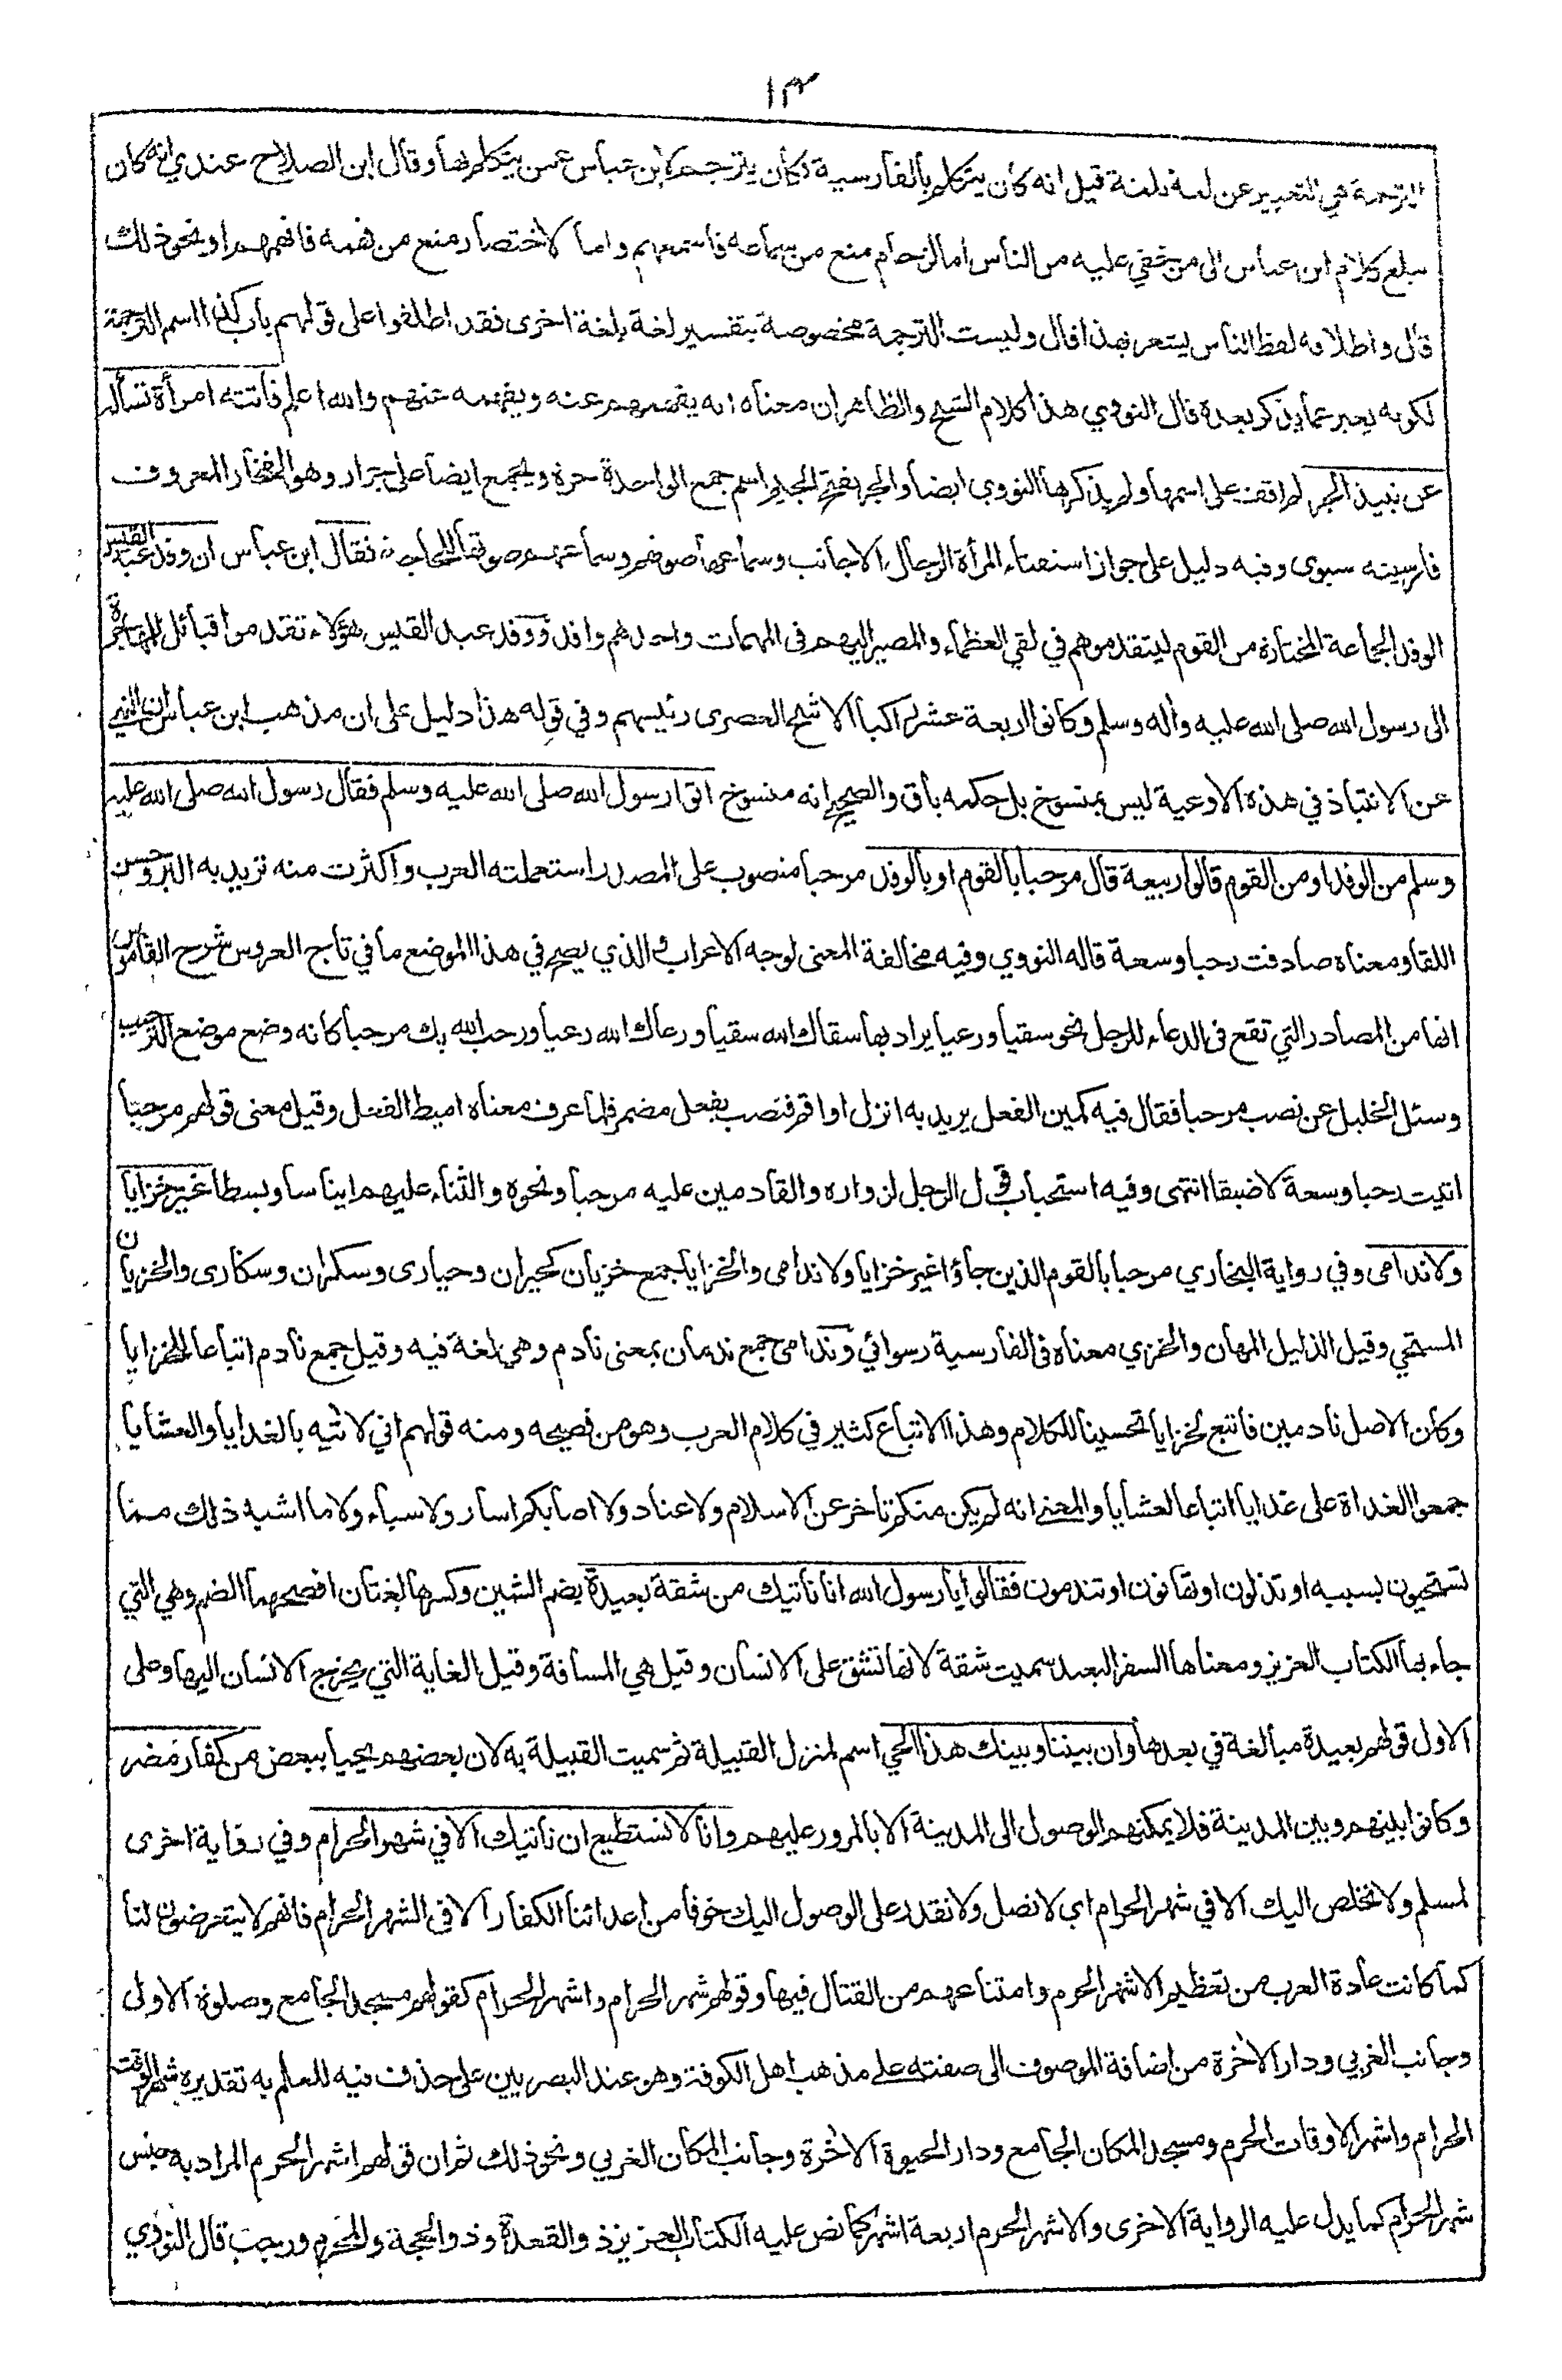 ١٣
الترجمة هي التعبير عن لغة بلغة قيل انه كان يتكلم بالفارسية وكان يترجم لابن عباس عمن يتكلم بها وقال ابن الصلاح عندي انه كان
يبلغ كلام ابن عباس الى من خفي عليه من الناس اما لزحام منع من سماعه فاسمعهم واما لاختصار منع من فهمه فافهمهم او نحو ذلك
قال واطلاقه لفظ الناس يشعر بهذا قال وليست الترجمة مخصوصة بتفسير لغة بلغة اخرى فقد اطلقوا على قولهم باب كذا اسم الترجمة
لكونه يعبر عما يذكر بعده قال النووي هذا كلام الشيخ والظاهر ان معناه انه يفهمهم عنه ويفهمه عنهم والله اعلم فأتته امرأة تسأله
عن نبيذ الجر لم اقف على اسمها ولم يذكرها النووي ايضا والجر بفتح الجيم اسم جمع الواحدة جرة ويجمع ايضا على جرار وهو الفخار المعروف
فارسيته سبوى وفيه دليل على جواز استفتاء المرأة الرجال الاجانب وسماعها صوتهم وسماعهم صوتها للحاجة فقال ابن عباس ان وفد عبد القيس
الوفد الجماعة المختارة من القوم ليتقدموهم في لقي العظماء والمصير اليهم في المهمات واحدهم وافد ووفد عبد القيس هؤلاء تقدموا قبائل للمهاجرة
الى رسول الله صلى الله عليه وأله وسلم وكانوا اربعة عشر راكبا الاشج العصرى رئيسهم وفي قوله هذا دليل على ان مذهب ابن عباس ان النهي
عن الانتباذ في هذه الاوعية ليس بمنسوخ بل حكمه باق والصحيح انه منسوخ اتوا رسول الله صلى الله عليه وسلم فقال رسول الله صلى الله عليه
وسلم من الوفد او من القوم قالوا ربيعة قال مرحبا بالقوم او بالوفد مرحبا منصوب على المصدر استعملته العرب واكثرت منه تريد به البر وحسن
اللقا ومعناه صادفت رحبا وسعة قاله النووي وفيه مخالفة المعنى لوجه الاعراب والذي يصح في هذا الموضع ما في تاج العروس شرح القاموس
انها من المصادر التي تقع في الدعاء للرجل نحو سقيا ورعيا يراد بها سقاك الله سقيا ورعاك الله رعيا ورحب الله بك مرحبا كانه وضع موضع الترحيب
وسئل الخليل عن نصب مرحبا فقال فيه كمين الفعل يريد به انزل او اقم فنصب بفعل مضمر فلما عرف معناه اميط الفعل وقيل معنى قولهم مرحبا
اتيت رحبا وسعة لا ضيقا انتهى وفيه استحباب قول الرجل لزواره والقادمين عليه مرحبا ونحوه والثناء عليهم ايناسا وبسطا غير خزايا
ولا ندامى وفي رواية البخاري مرحبا بالقوم الذين جاؤا غير خزايا ولا ندامى والخزايا جمع خزيان كحيران وحيارى وسكران وسكارى والخزيان
المستحي وقيل الذليل المهان والخزي معناه في الفارسية رسوائي وندامى جمع ندمان بمعنى نادم وهي لغة فيه وقيل جمع نادم اتباعا للخزايا
وكان الاصل نادمين فاتبع لخزايا تحسينا للكلام وهذا الاتباع كثير في كلام العرب وهو من فصيحه ومنه قولهم اني لاتيه بالغدايا والعشايا
جمعوا الغداة على غدايا اتباعا لعشايا والمعنى انه لم يكن منكم تاخر عن الاسلام ولا عناد ولا اصابكم اسار ولا سباء ولا ما اشبه ذلك مما
تستحيون بسببه او تذلون او تهانون او تندمون فقالوا يا رسول الله انا ناتيك من شقة بعيدة بضم الشين وكسرها لغتان افصحهما الضم وهي التي
جاء بها الكتاب العزيز ومعناها السفر البعيد سميت شقة لانها تشق على الانسان وقيل هي المسافة وقيل الغاية التي يخرج الانسان اليها وعلى
الاول قولهم بعيدة مبالغة في بعدها وان بيننا وبينك هذا الحي اسم لمنزل القبيلة ثم سميت القبيلة به لان بعضهم يحيا ببعض من كفار مضر
وكانوا بينهم وبين المدينة فلا يمكنهم الوصول الى المدينة الا بالمرور عليهم وانا لا نستطيع ان ناتيك الا في شهر الحرام وفي رواية اخرى
لمسلم ولا نخلص اليك الا في شهر الحرام اي لا نصل ولا نقدر على الوصول اليك خوفا من اعدائنا الكفار الا في الشهر الحرام فانهم لا يتعرضون لنا
كما كانت عادة العرب من تعظيم الاشهر الحرم وامتناعهم من القتال فيها وقولهم شهر الحرام واشهر الحرام كقولهم مسجد الجامع وصلوة الاولى
وجانب الغربي ودار الاخرة من اضافة الموصوف الى صفته على مذهب اهل الكوفة وهو عند البصريين على حذف فيه للعلم به تقديره شهر الوقت
الحرام واشهر الاوقات الحرم ومسجد المكان الجامع ودار الحيوة الاخرة وجانب المكان الغربي ونحو ذلك ثم ان قولهم اشهر الحرم المراد به جنس
شهر الحرام كما يدل عليه الرواية الاخرى والاشهر الحرم اربعة اشهر كما نص عليه الكتاب العزيز ذو القعدة وذو الحجة والمحرم ورجب قال النووي